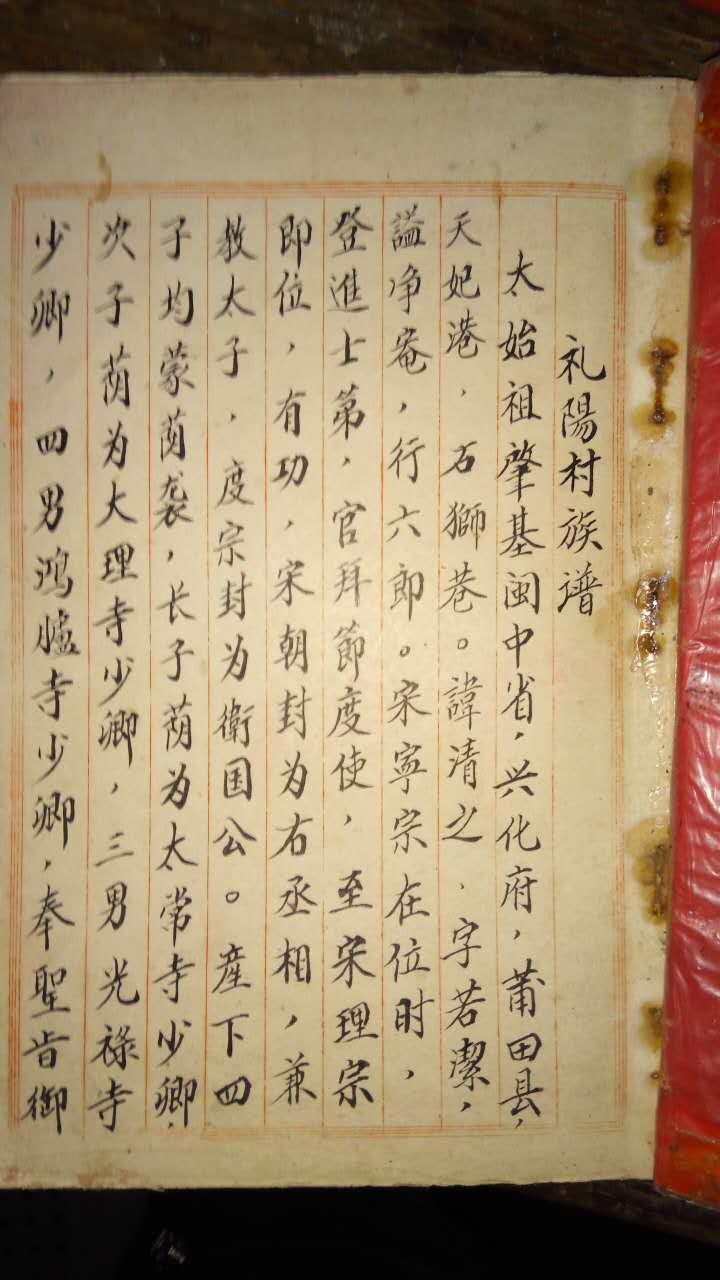 礼陽村族谱
太始祖肇基闽中省，兴化府，莆田县，
天妃港，石獅巷。諱清之，字若潔，
謚净菴，行六郎。宋寜宗在位时，
登進士第，官拜節度使，至宋理宗
即位，有功，宋朝封为右丞相，兼
教太子，度宗封为衛国公。産下四
子均蒙荫袭，长子荫为太常寺少卿，
次子荫为大理寺少卿，三男光禄寺
少卿，四男鸿臚寺少卿，奉聖旨御